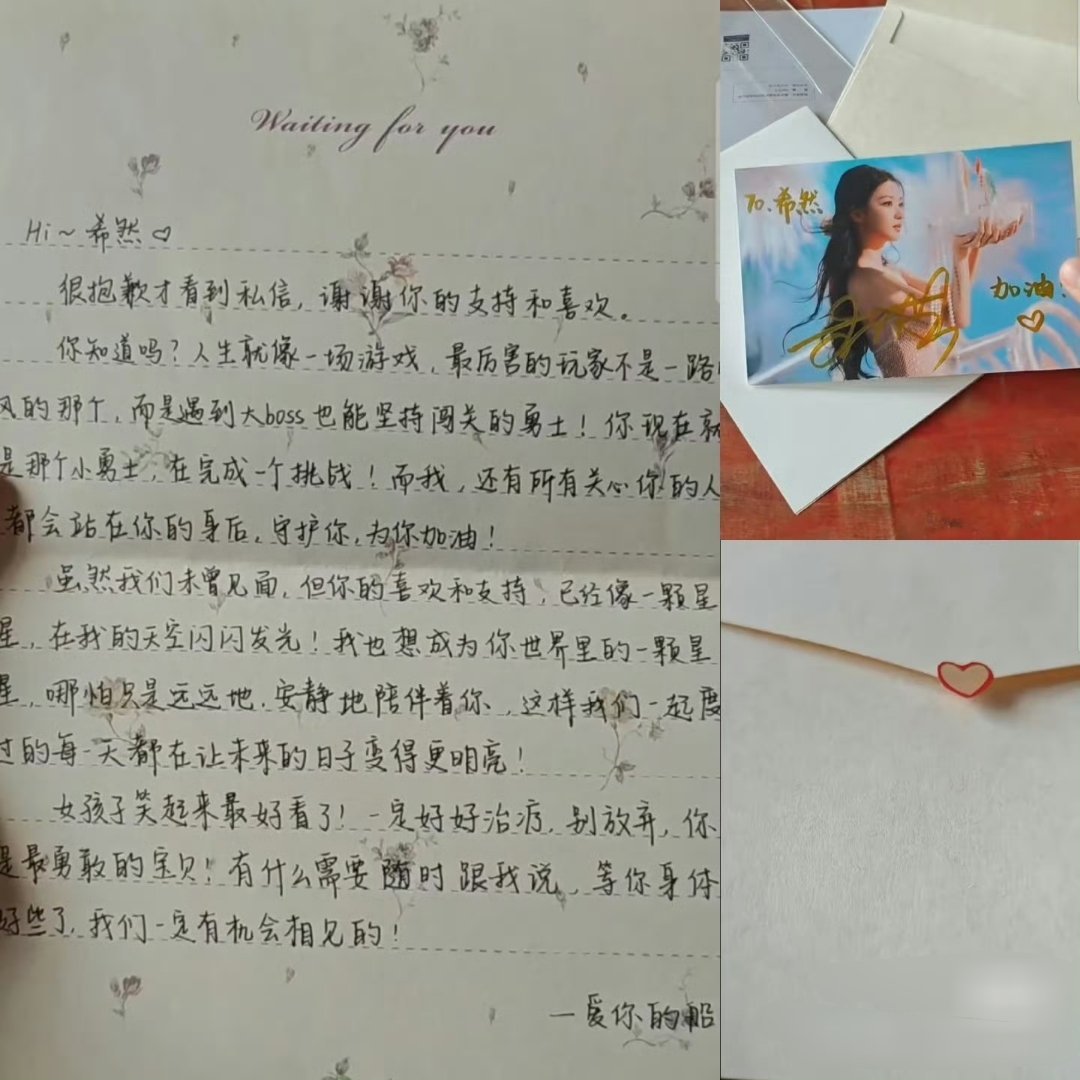 Waiting for you
Hi～希然♡
很抱歉才看到私信，谢谢你的支持和喜欢。
你知道吗？人生就像一场游戏，最厉害的玩家不是一路
风的那个，而是遇到大boss也能坚持闯关的勇士！你现在就
是那个小勇士，在完成一个挑战！而我，还有所有关心你的人
都会站在你的身后，守护你，为你加油！
虽然我们未曾见面，但你的喜欢和支持，已经像一颗星
星，在我的天空闪闪发光！我也想成为你世界里的一颗星
星，哪怕只是远远地、安静地陪伴着你，这样我们一起度
过的每一天都在让未来的日子变得更明亮！
女孩子笑起来最好看了！一定好好治疗，别放弃，你
是最勇敢的宝贝！有什么需要随时跟我说，等你身体
好些了，我们一定有机会相见的！
—爱你的船
To.希然
加油.
♡